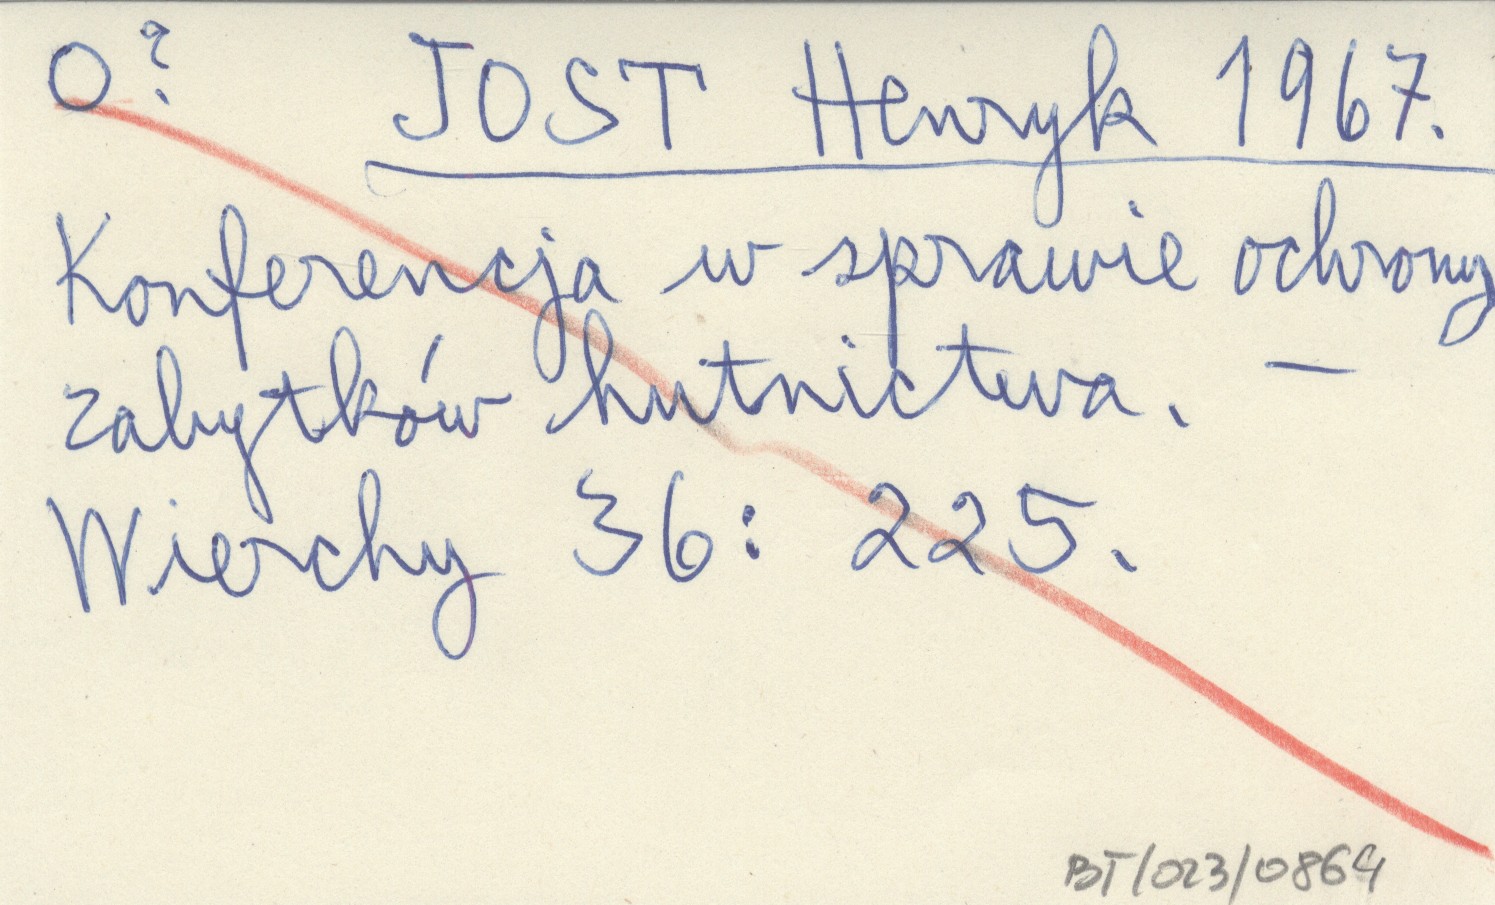 O? JOST Henryk 1967.
Konferencja w sprawie ochrony
zabytków hutnictwa. —
Wierchy 36: 225.
BT/023/0864